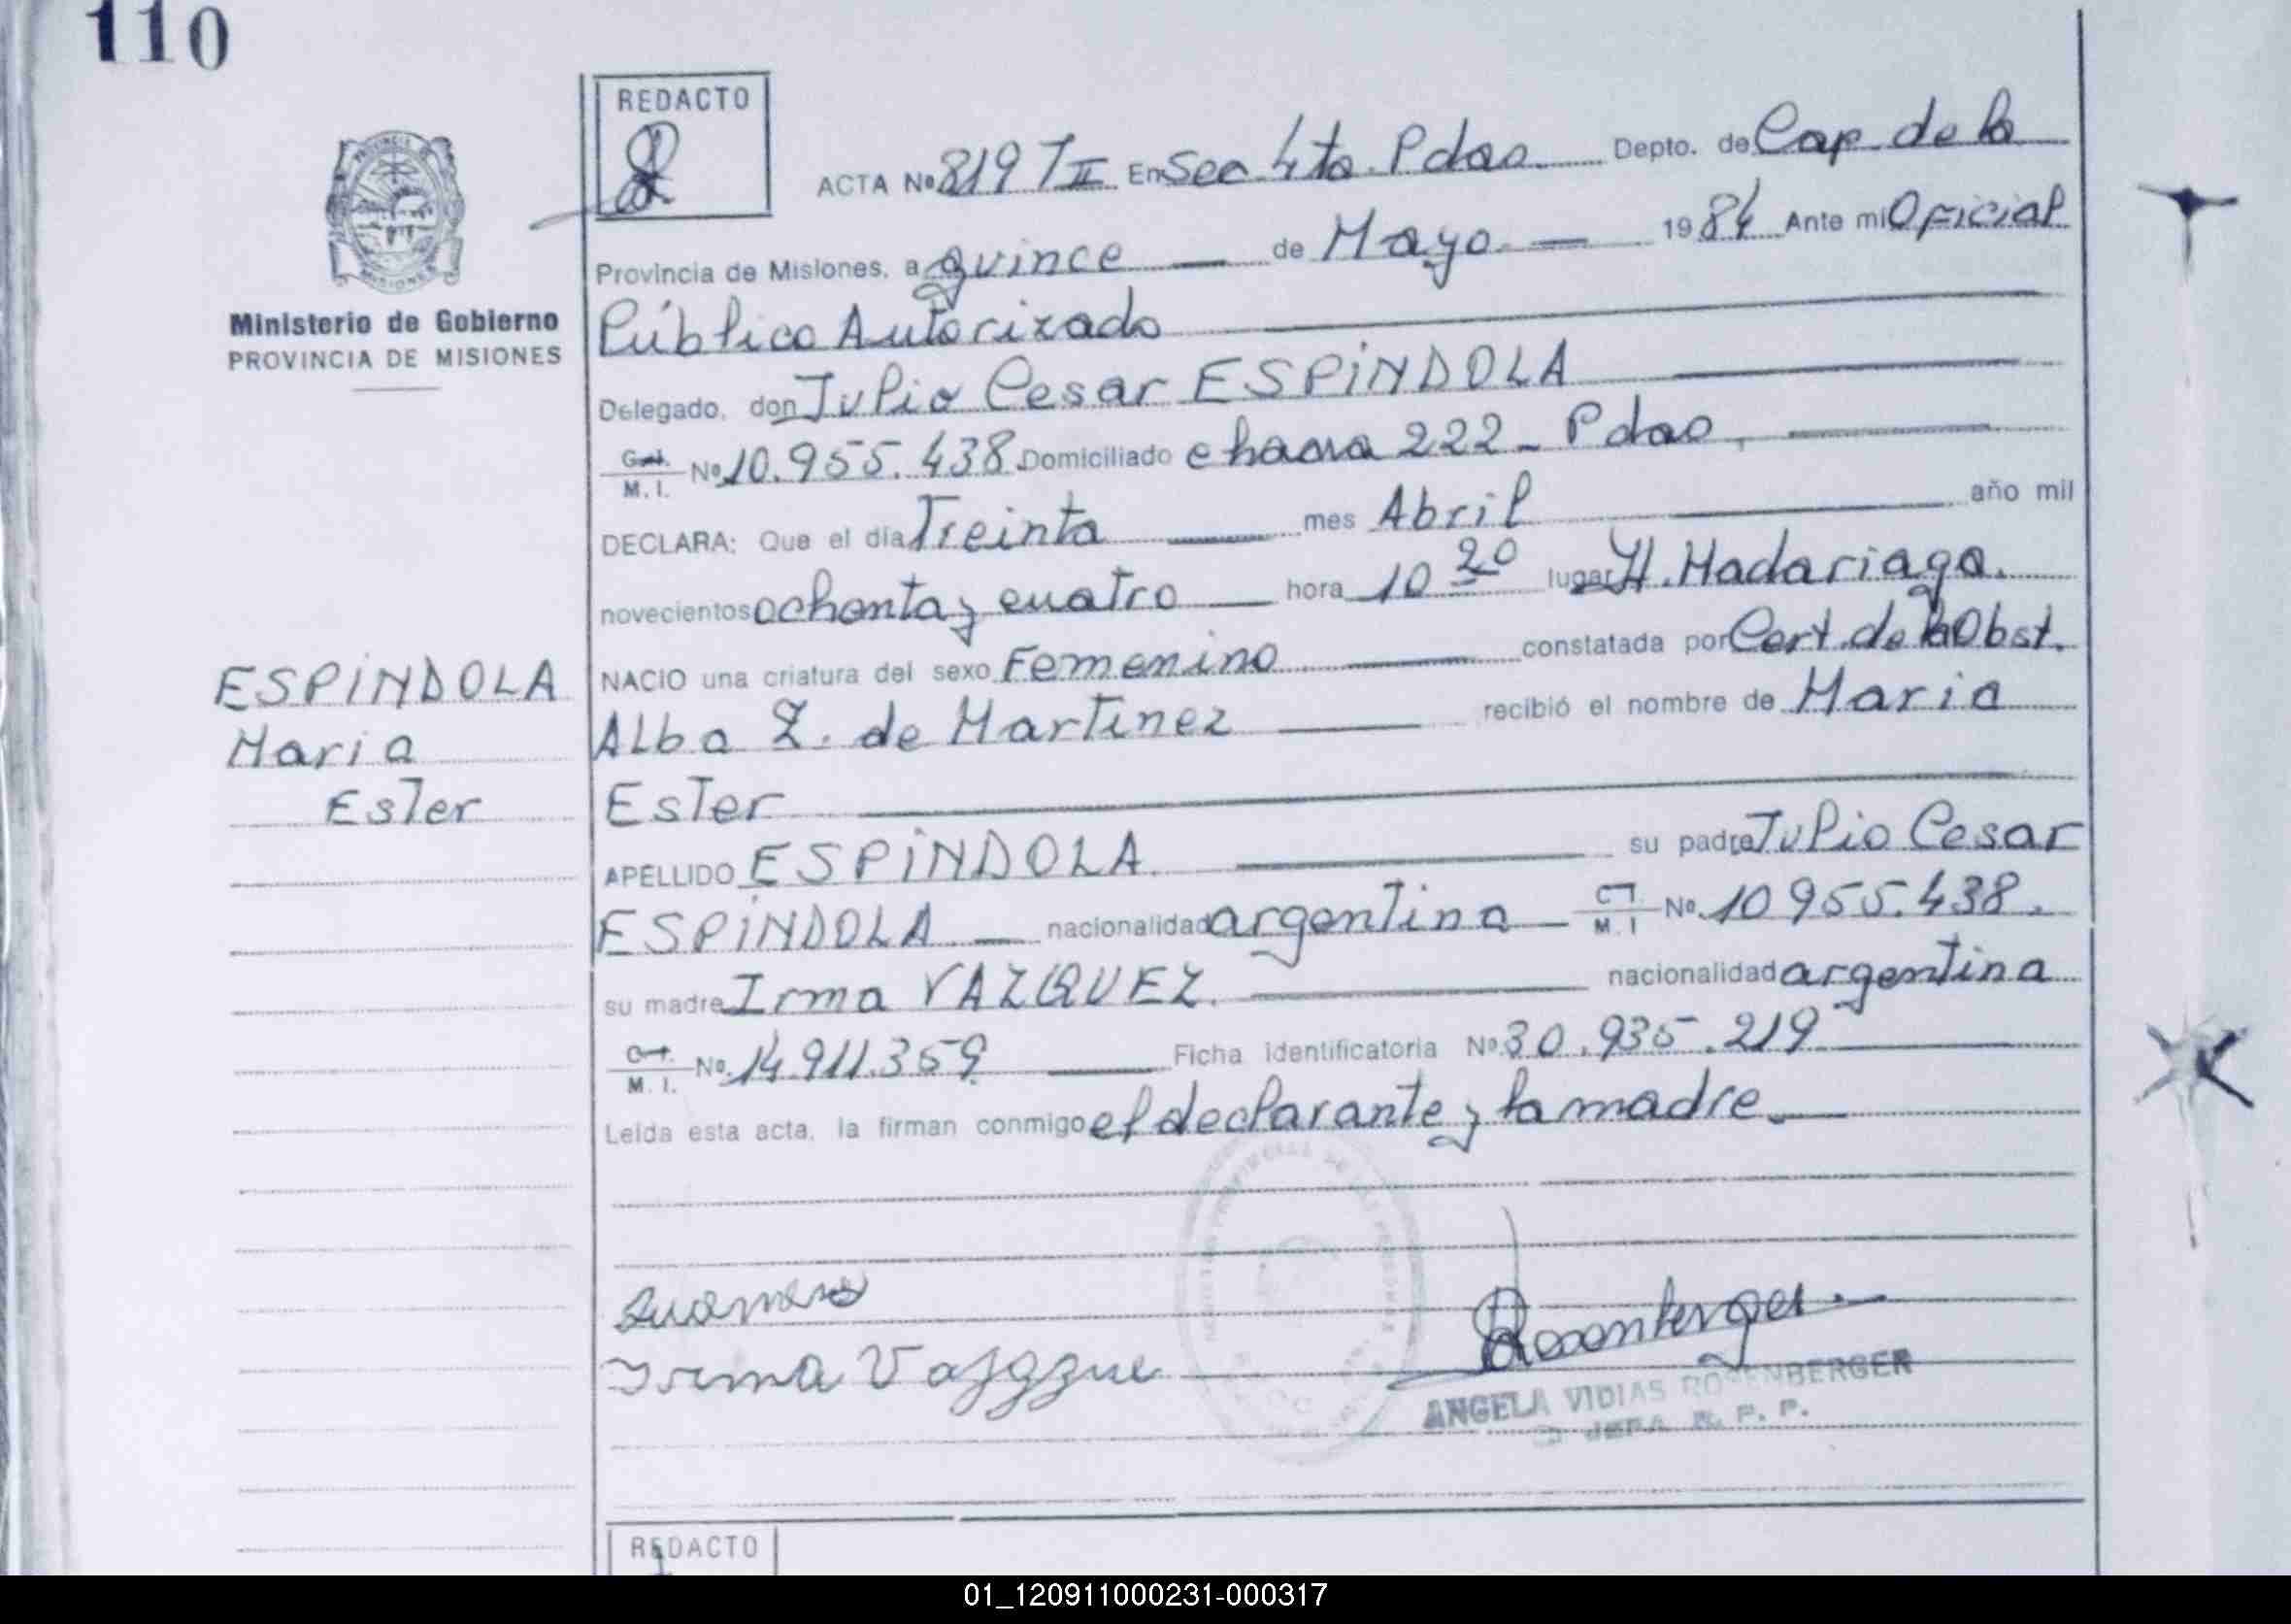 110
REDACTO
ACTA Nº 819 TII En Sec 4ta. Pdas. Depto. de Cap. de la
Provincia de Misiones, a quince de Mayo 1984 Ante mi Oficial
Ministerio de Gobierno
PROVINCIA DE MISIONES
Público Autorizado
Delegado, don Julio Cesar ESPINDOLA
M. I. Nº 10.955.438 Domiciliado chacra 222 - Pdas,
DECLARA: Que el día Treinta mes Abril año mil
novecientos ochenta y cuatro hora 10 20 lugar H. Madariaga.
NACIO una criatura del sexo Femenino constatada por Cert. de la Obst.
Alba Z. de Martinez recibió el nombre de Maria
Ester
ESPINDOLA
Maria
Ester
APELLIDO ESPINDOLA su padre Julio Cesar
ESPINDOLA nacionalidad argentina M. I Nº 10 955.438.
su madre Irma VAZQUEZ. nacionalidad argentina
M. I. Nº 14.911.359 Ficha identificatoria Nº 30.935.219
Leída esta acta, la firman conmigo el declarante y la madre
Irma
Rosenberger
ANGELA VIDIAS ROSENBERGER
JEFA R. P. P.
REDACTO
01_120911000231-000317